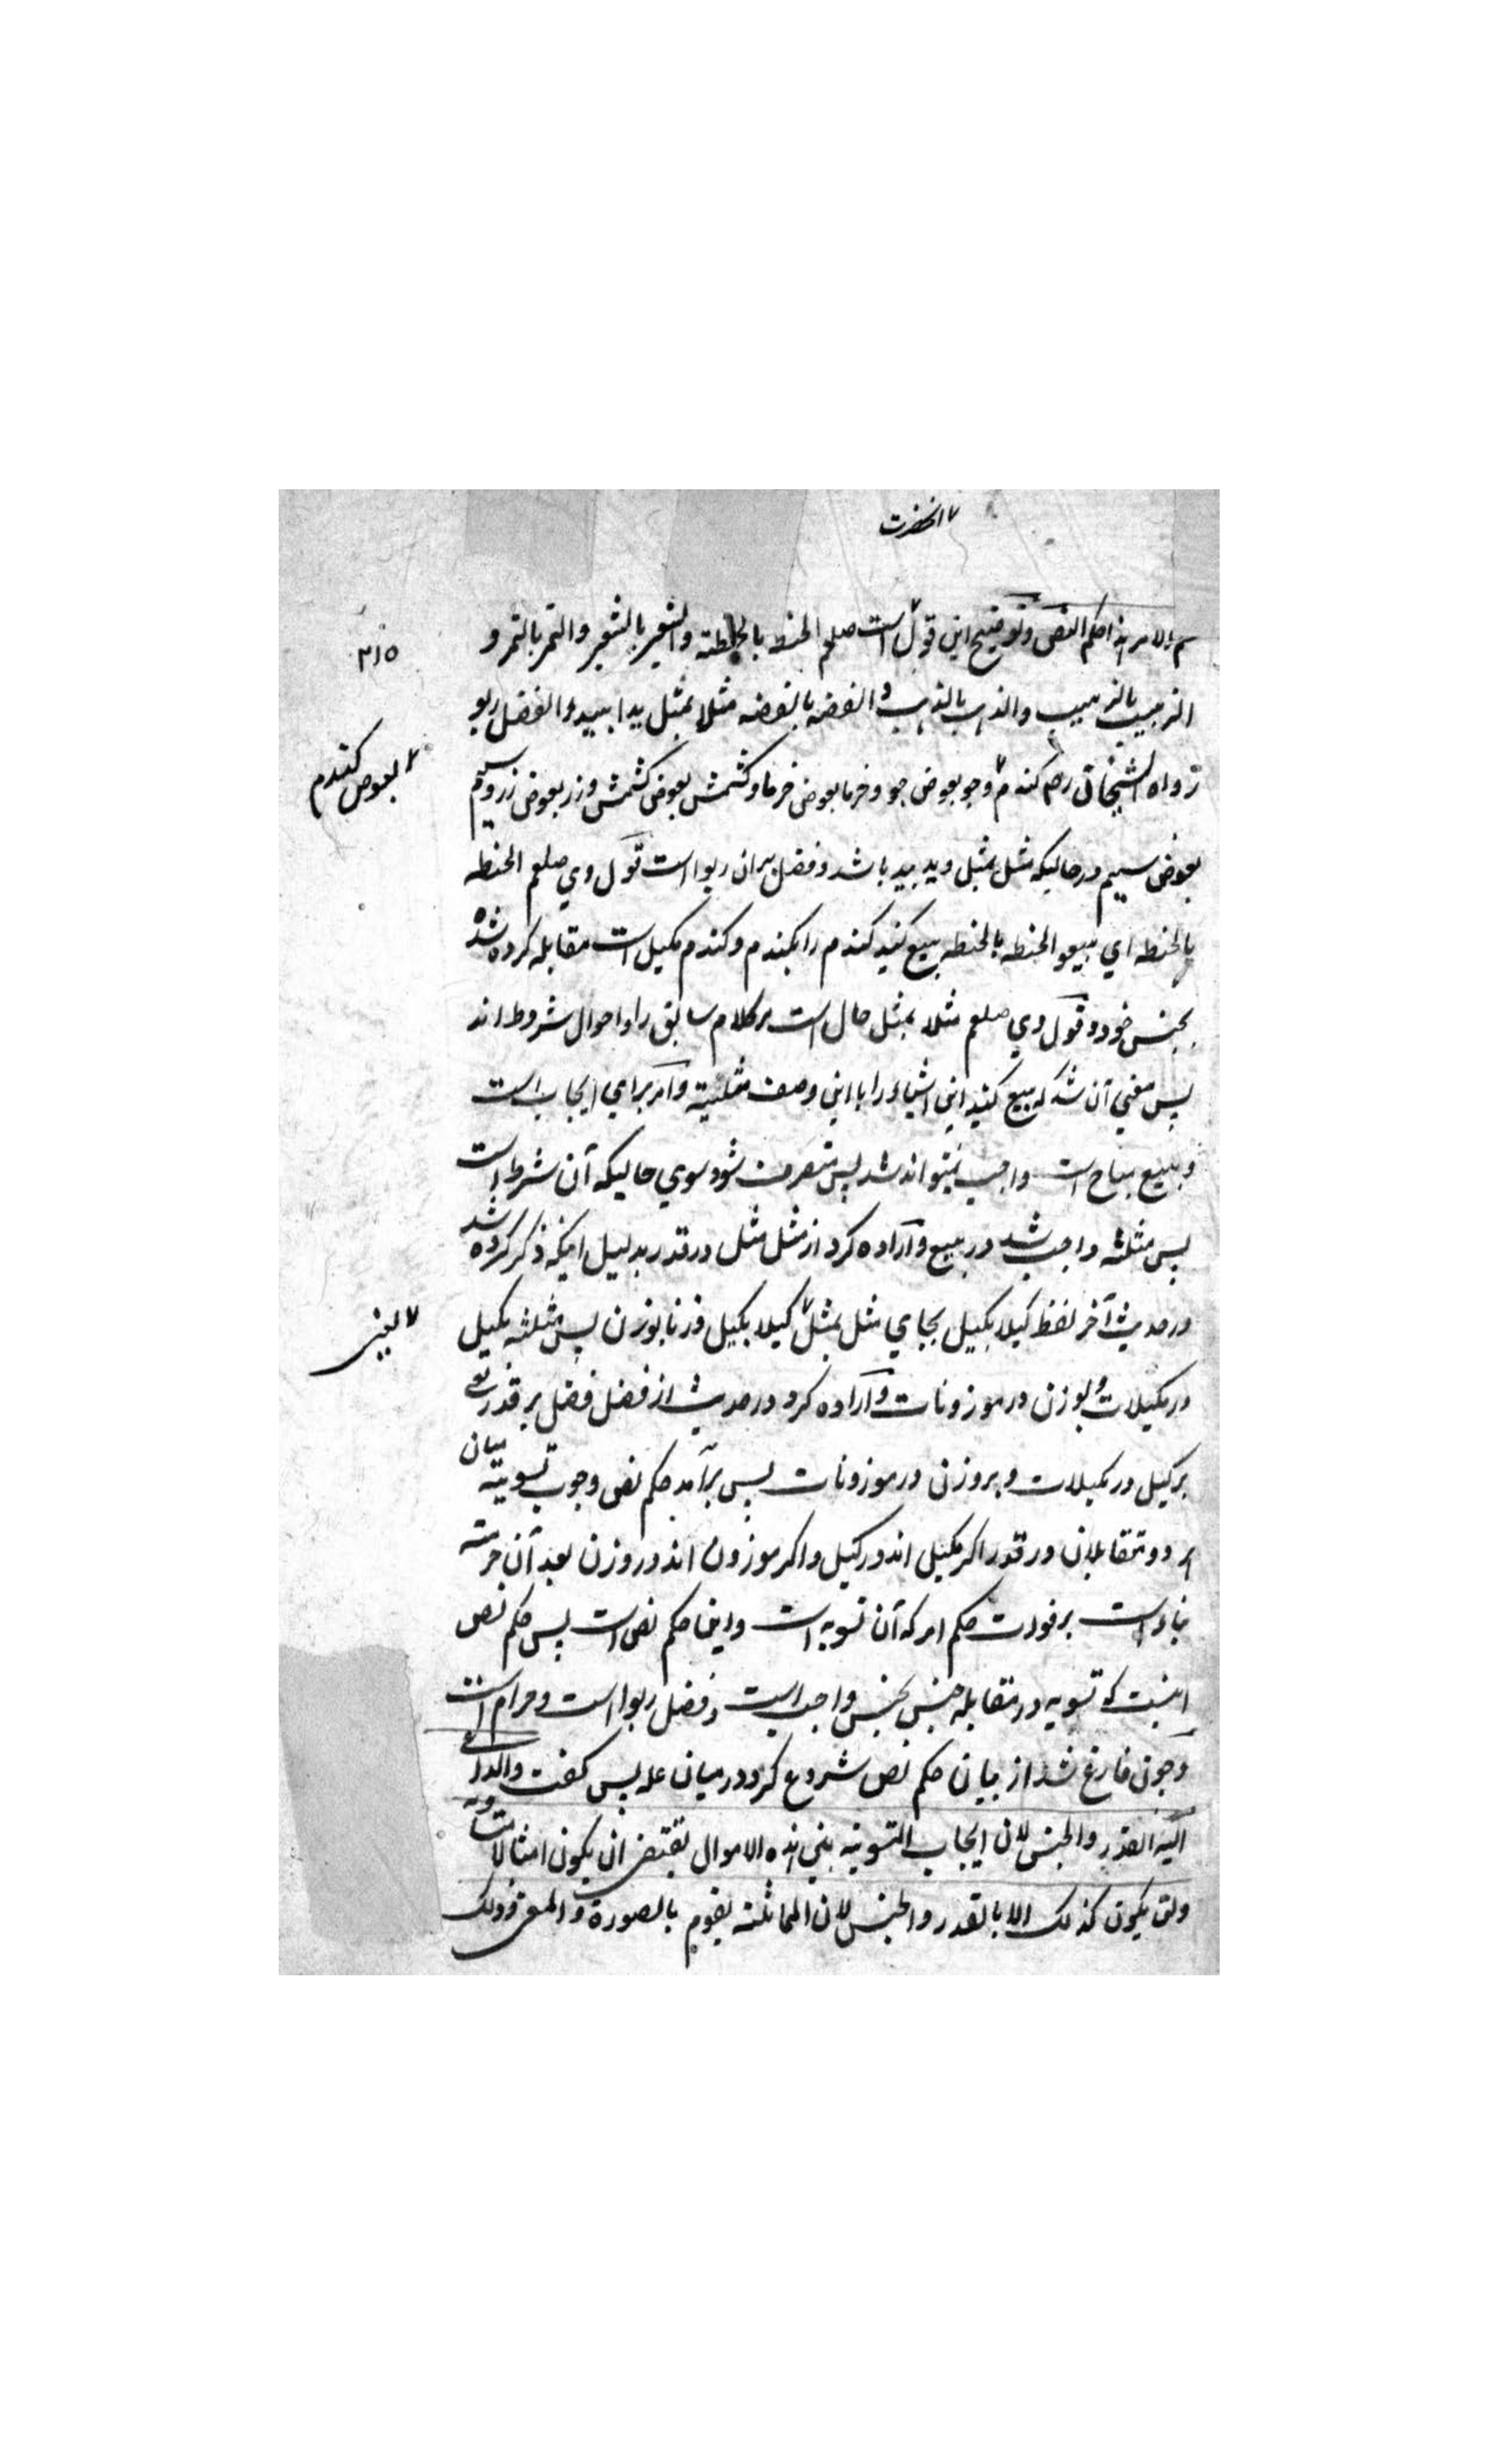 آنحضرت
حکم الامر هذا حکم النص و توضیح این قول است صلعم الحنطه بالحنطته والشعیر بالشعیر والتمر بالتمر و
۳۱۵
الزبیب بالزبیب والذهب بالذهب و الفضه بالفضه مثلا بمثل یدا بید و الفضل ربو
رواه الشیخان رح کندم و جو بعوض جو و خرما بعوض خرما و کشمش بعوض کشمش و زر بعوض زر و سیم
بعوض کندم
بعوض سیم درحالیکه مثل بمثل وید بید باشد و فضل بران ربوا است قول وی صلعم الحنطه
بالحنطه ای بیعو الحنطه بالحنطه بیع کنید کندم را بکندم و کندم مکیل است مقابله کرده شده
بجنس خود و قول وی صلعم مثلا بمثل حال است مر کلام سابق را و احوال شروط اند
پس معنی آن شد که بیع کنید این اشیاء را با این وصف مثلیته و امر برای ایجاب است
و بیع مباح است واجب نمیتواند شد پس متصرف شود سوی حالیکه آن شرط است
پس مثلثه واجب شد در بیع و اراده کرد از مثل مثل در قدر بدلیل اینکه ذکر کرده شد
در حدیث آخر لفظ کیلا بکیل بجای مثل بمثل کیلا بکیل وزنا بوزن پس مثلثه بکیل
یعنی
در مکیلات و بوزن در موزونات و اراده کرد در حدیث از فضل فضل بر قدر یعنی
بر کیل در مکیلات و بر وزن در موزونات پس برآمد حکم نص وجوب تسویته میان
هر دو متقابلان در قدر اکر مکیل اند در کیل و اکر موزون اند در وزن بعد آن حرمته
بناء است بر فوت حکم امر که آن تسویه است و این حکم نص است پس حکم نص
اینست که تسویه در مقابله جنس بجنس واجب است و فضل ربوا است و حرام است
و چون فارغ شد از بیان حکم نص شروع کرد در میان عله پس کفت والداعی
الیه القدر والجنس لان ایجاب التسویته بین هذه الاموال یقتضی ان یکون امثالا متساویه
ولن یکون کذلک الا بالقدر والجنس لان المماثلته یقوم بالصورة والمعنی وذلک